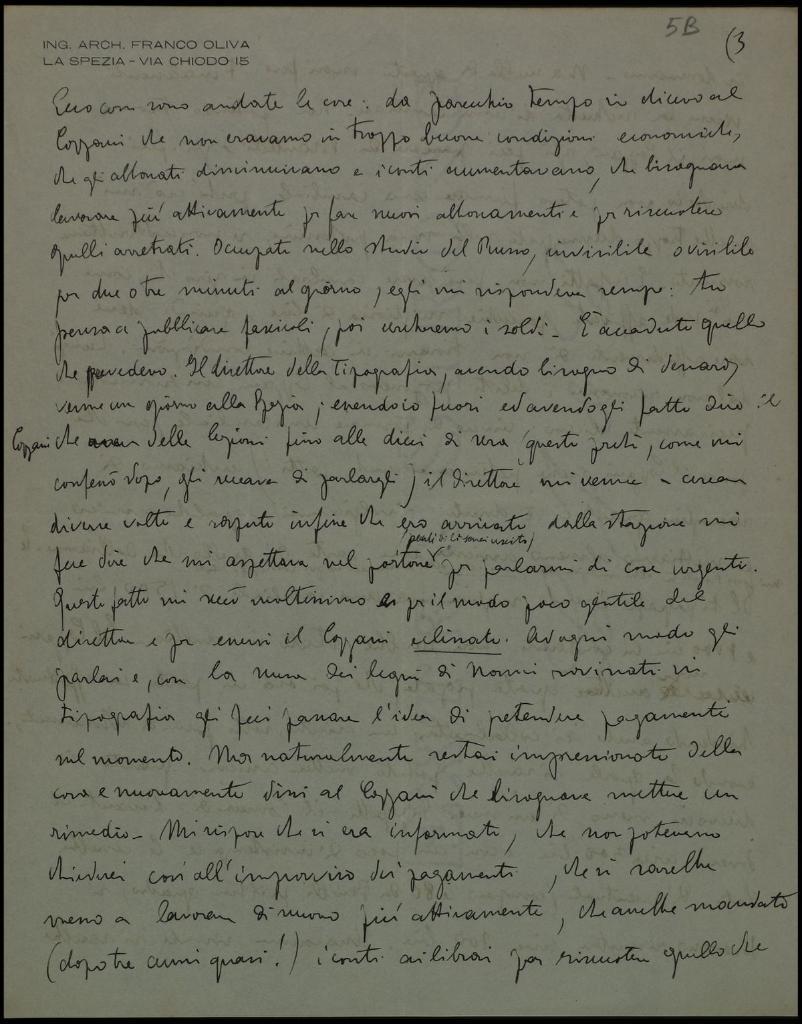 5B (3
ING. ARCH. FRANCO OLIVA
LA SPEZIA - VIA CHIODO 15
Ecco come sono andate le cose: da parecchio tempo io dicevo al
Cozzani che non eravamo in troppo buone condizioni economiche,
che gli abbonati diminuivano e i conti aumentavano, che bisognava
lavorare più attivamente per fare nuovi abbonamenti e per riscuotere
quelli arretrati. Occupato nello studio del Russo, invisibile o visibile
per due o tre minuti al giorno, egli mi rispondeva sempre: Tu
pensa a pubblicare fascicoli, poi conteremo i soldi - È accaduto quello
che prevedevo. Il direttore della Tipografia, avendo bisogno di denaro,
venne un giorno alla Spezia; essendo io fuori ed avendogli fatto dire il
Cozzani che delle lezioni fino alle dieci di sera (questo però, come mi
confessò dopo, gli seccava di parlargli) il direttore mi venne a cercare
diverse volte e saputo infine che ero arrivato dalla stazione mi
fece dire che mi aspettava nel portone per parlarmi di cose urgenti.
Questo fatto mi seccò moltissimo per il modo poco gentile del
direttore e per essersi il Cozzani eclissato. Ad ogni modo gli
parlai e, con la scusa dei legni di Nomi rovinati in
tipografia gli feci passare l'idea di pretendere pagamenti
sul momento. Ma naturalmente restai impressionato della
cosa e nuovamente dissi al Cozzani che bisognava mettere un
rimedio - Mi rispose che si era informato, che non potevano
chiederci così all'improvviso dei pagamenti, che si sarebbe
messo a lavorare di nuovo più attivamente, che avrebbe mandato
(dopo tre anni quasi!) i conti ai librai per riscuotere quello che